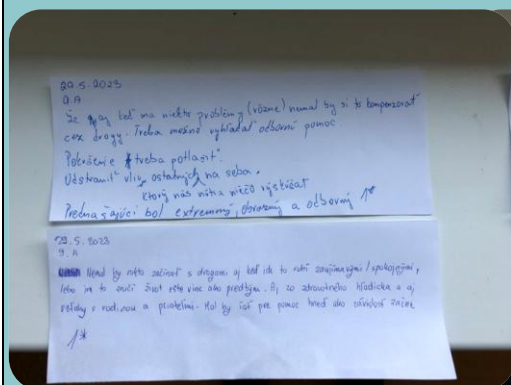 29.5.2023
9.A
Že aj keď ma niekto problémy (rôzne) nemal by si to kompenzovať
cez drogy. Treba možno vyhľadať odbornú pomoc
Pokušenie treba potlačiť.
Odstrániť vliv ostatných na seba.
ktorý nás núti a niečo
Prednašajúci bol extremný, obrazný a odborný 1*
29.5.2023
9.A
Nemal by nikto začínať s drogami aj keď ich to robí zaujímavými/spokojnejšími,
lebo im to zničí život ešte viac ako predtým. Aj zo zdravotného hľadiska a aj
vzťahy s rodinou a priateľmi. Mal by ísť pre pomoc hneď ako závislosť začne
1*